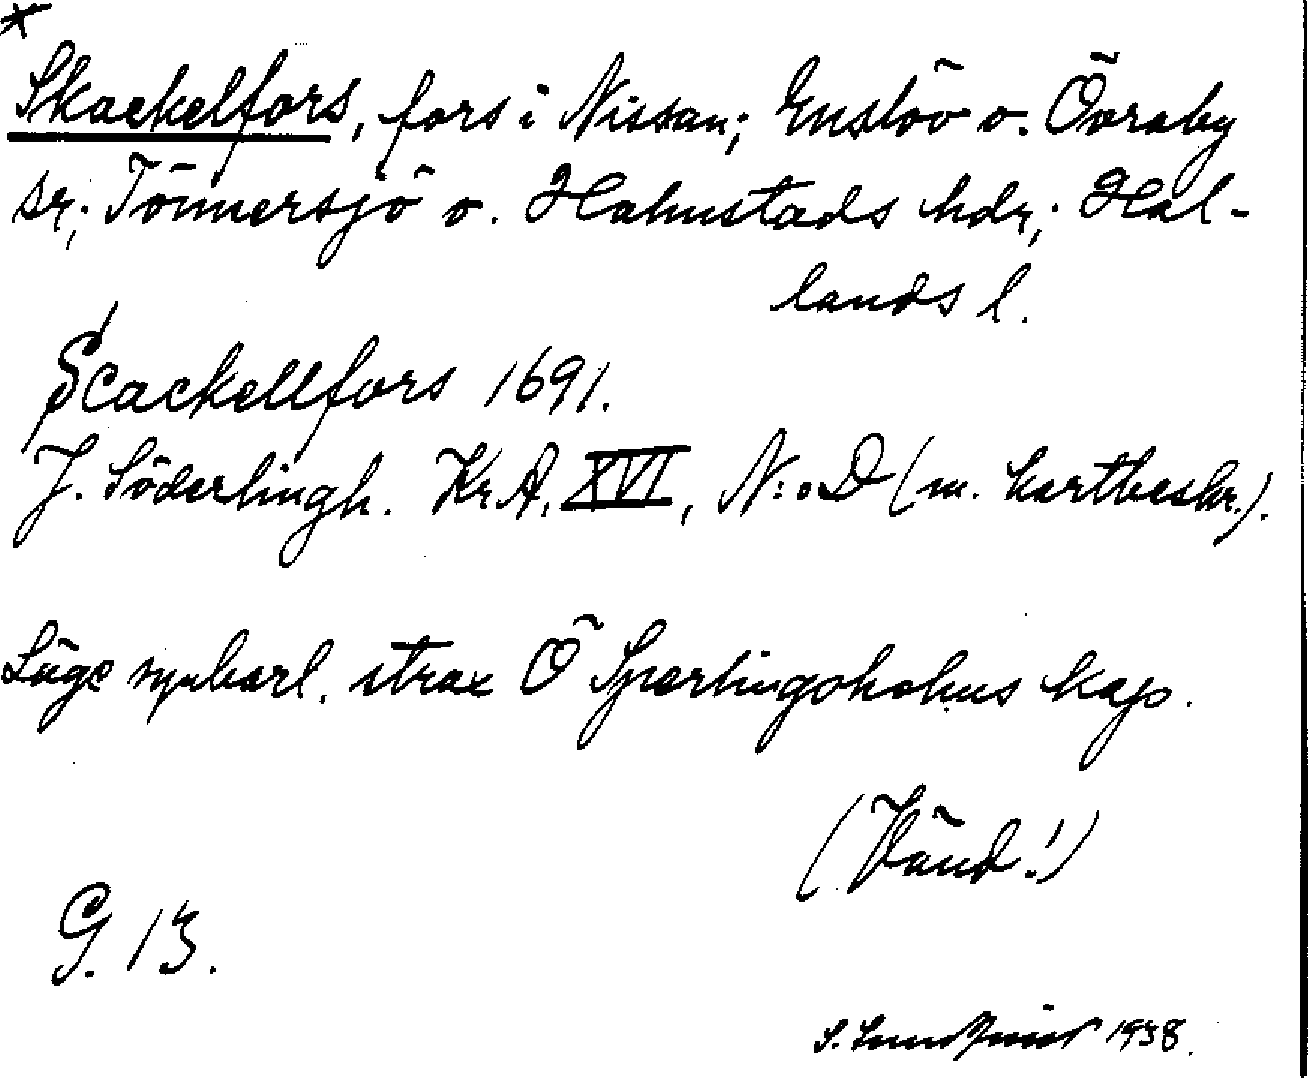 *
Skackelfors, fors i Nissan; Enslöv o. Övraby
sr; Tönnersjö o. Halmstads hdr; Hal-
lands l.
Scackellfors 1691.
J. Söderlingh. Kr.A. XVI, N:o D (m. kartbeskr.).
Läge synbarl. strax Ö Sperlingsholms kap.
(Vänd!)
G. 13.
S. 1938.